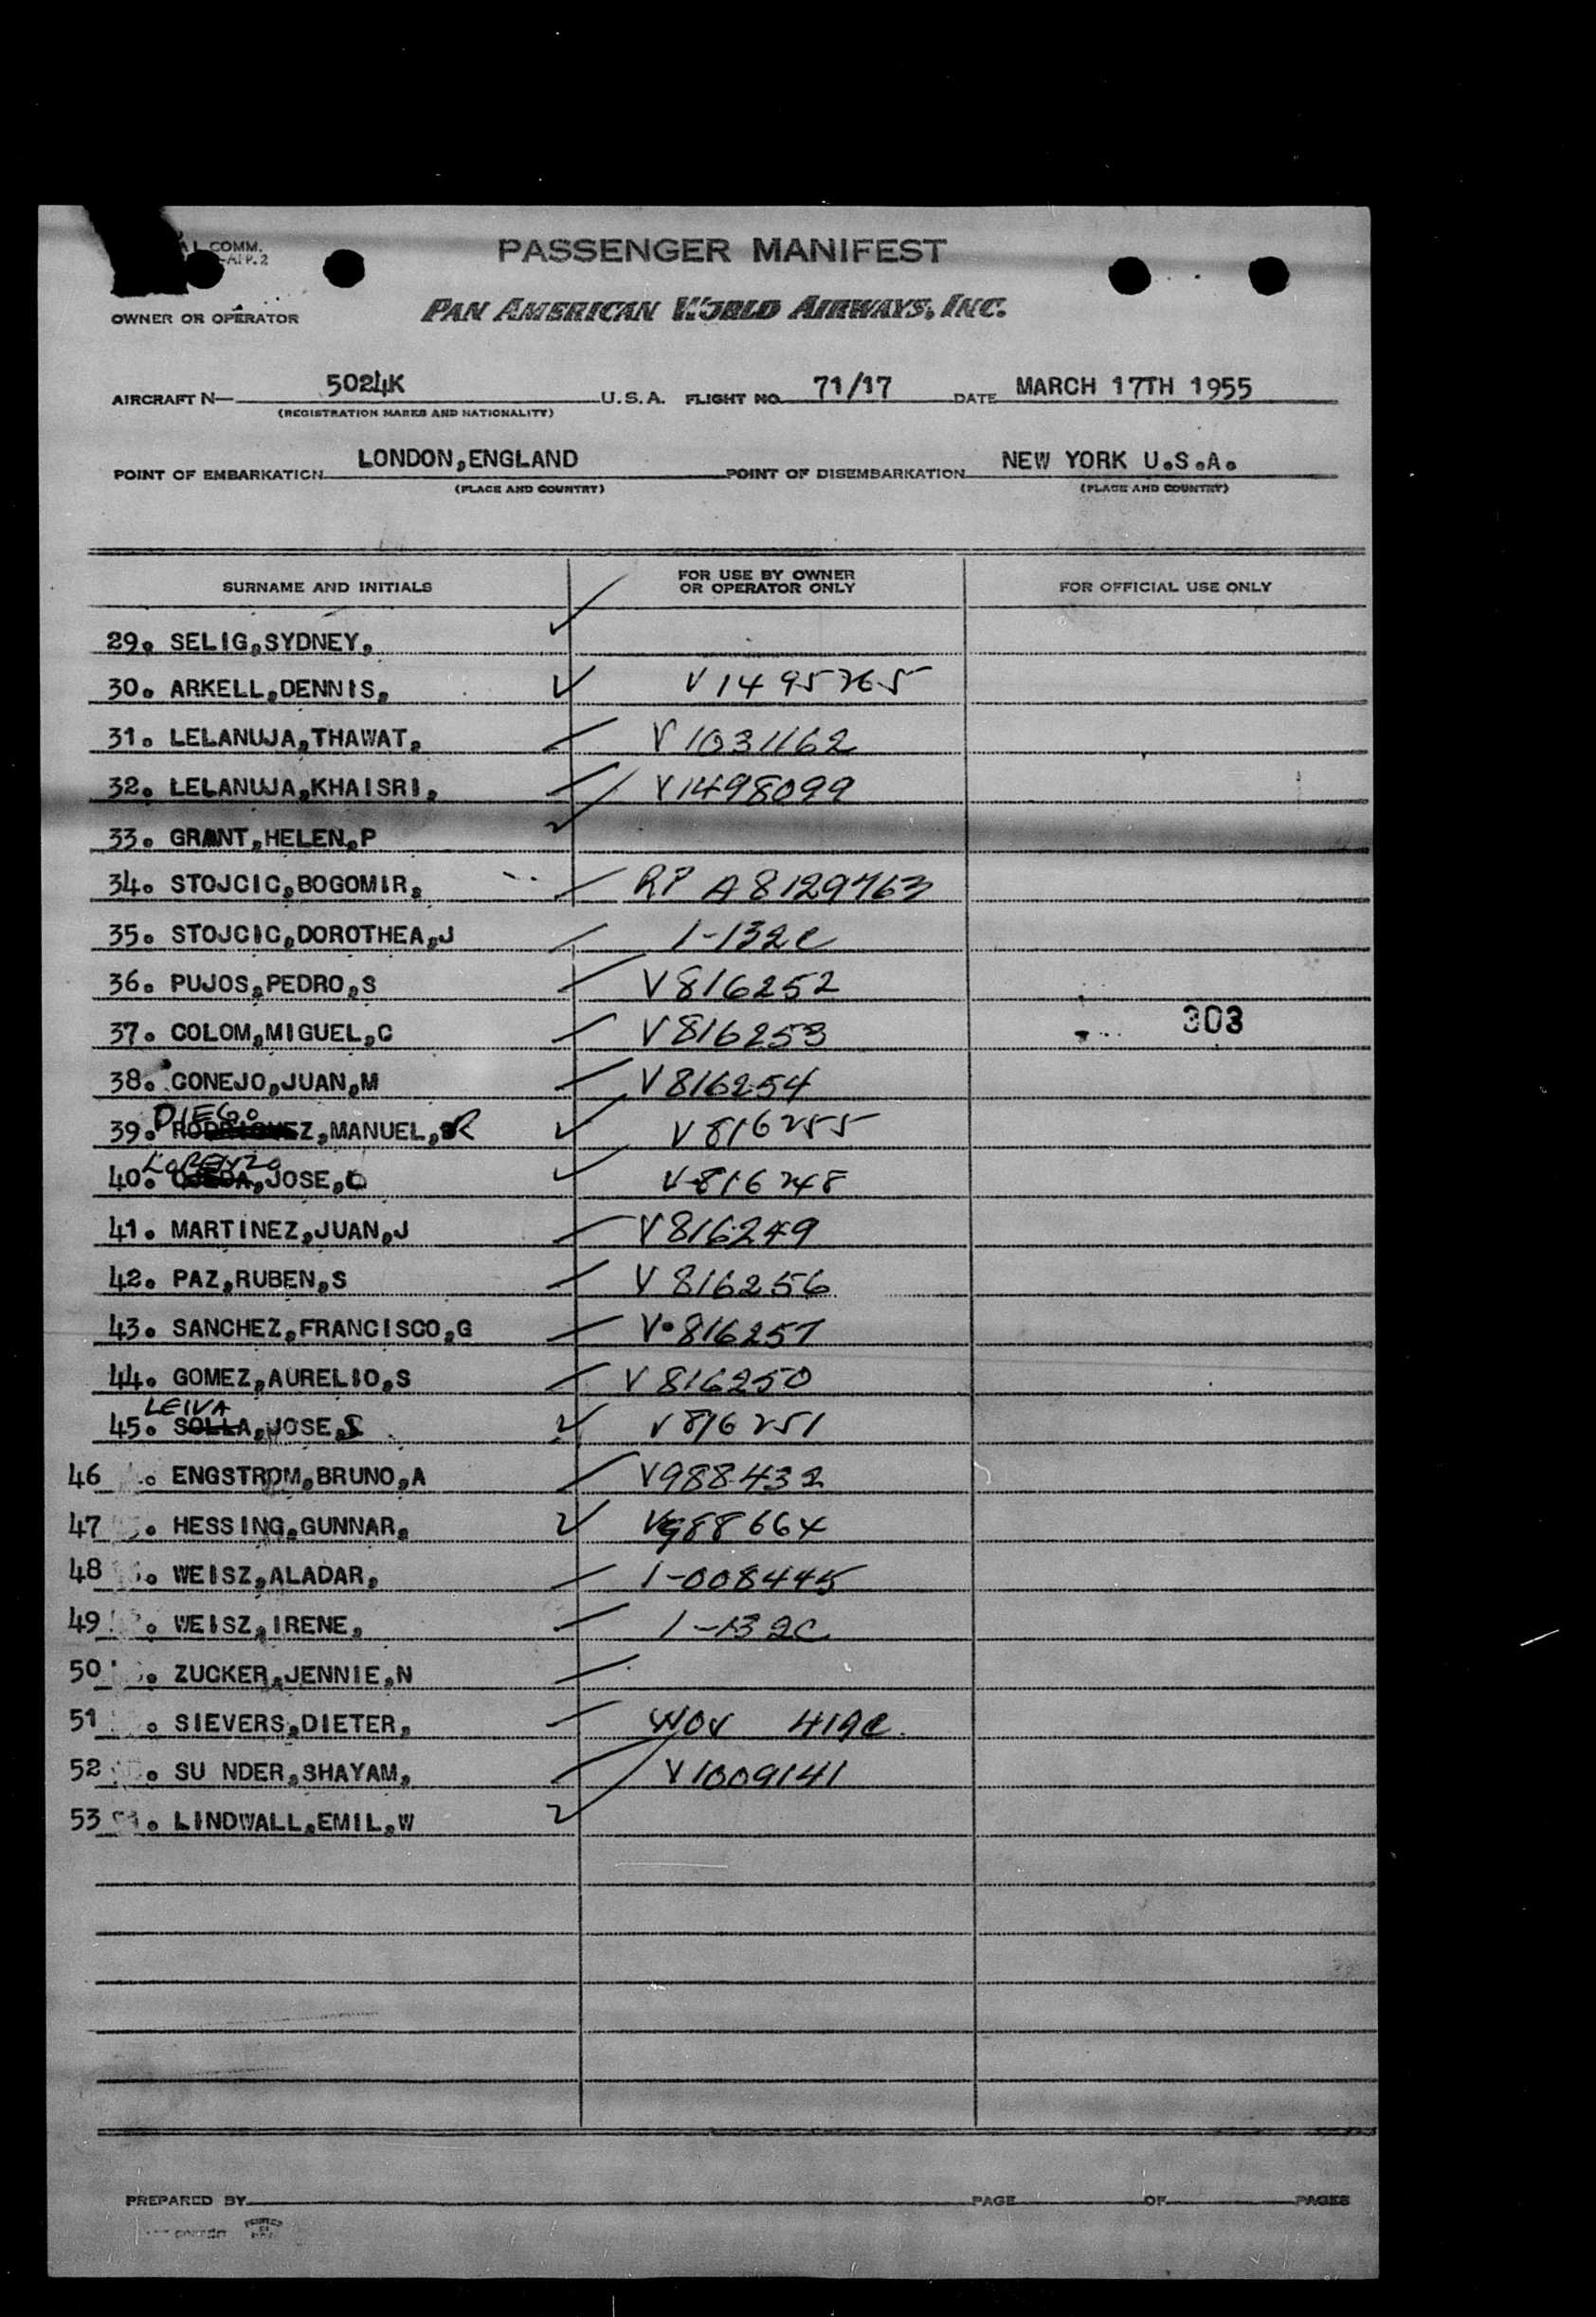 COMM.
APP.2
PASSENGER MANIFEST
OWNER OR OPERATOR
PAN AMERICAN WORLD AIRWAYS, INC.
AIRCRAFT N— 5024K U.S.A. FLIGHT NO. 71/17 DATE MARCH 17TH 1955
(REGISTRATION MARKS AND NATIONALITY)
POINT OF EMBARKATION LONDON,ENGLAND POINT OF DISEMBARKATION NEW YORK U.S.A.
(PLACE AND COUNTRY) (PLACE AND COUNTRY)
SURNAME AND INITIALS FOR USE BY OWNER OR OPERATOR ONLY FOR OFFICIAL USE ONLY
29. SELIG,SYDNEY, ✓
30. ARKELL,DENNIS, ✓ V1495765
31. LELANUJA,THAWAT, V1031162
32. LELANUJA,KHAISRI, V1498099
33. GRANT,HELEN,P ✓
34. STOJCIC,BOGOMIR, RP A8129763
35. STOJCIC,DOROTHEA,J 1-132C
36. PUJOS,PEDRO,S V816252
37. COLOM,MIGUEL,C V816253 303
38. CONEJO,JUAN,M V816254
DIEGO
39. RODRIGUEZ,MANUEL,R ✓ V816255
LORENZO
40. OJEDA,JOSE,O ✓ V816248
41. MARTINEZ,JUAN,J V816249
42. PAZ,RUBEN,S V816256
43. SANCHEZ,FRANCISCO,G V816257
44. GOMEZ,AURELIO,S V816250
LEIVA
45. SOLLA,JOSE,S ✓ V816251
46. ENGSTROM,BRUNO,A V988432
47. HESSING,GUNNAR, ✓ V988664
48. WEISZ,ALADAR, 1-008445
49. WEISZ,IRENE, 1-132C
50. ZUCKER,JENNIE,N
51. SIEVERS,DIETER, WOV 419C
52. SU NDER,SHAYAM, V1009141
53. LINDWALL,EMIL,W ✓
PREPARED BY PAGE OF PAGES